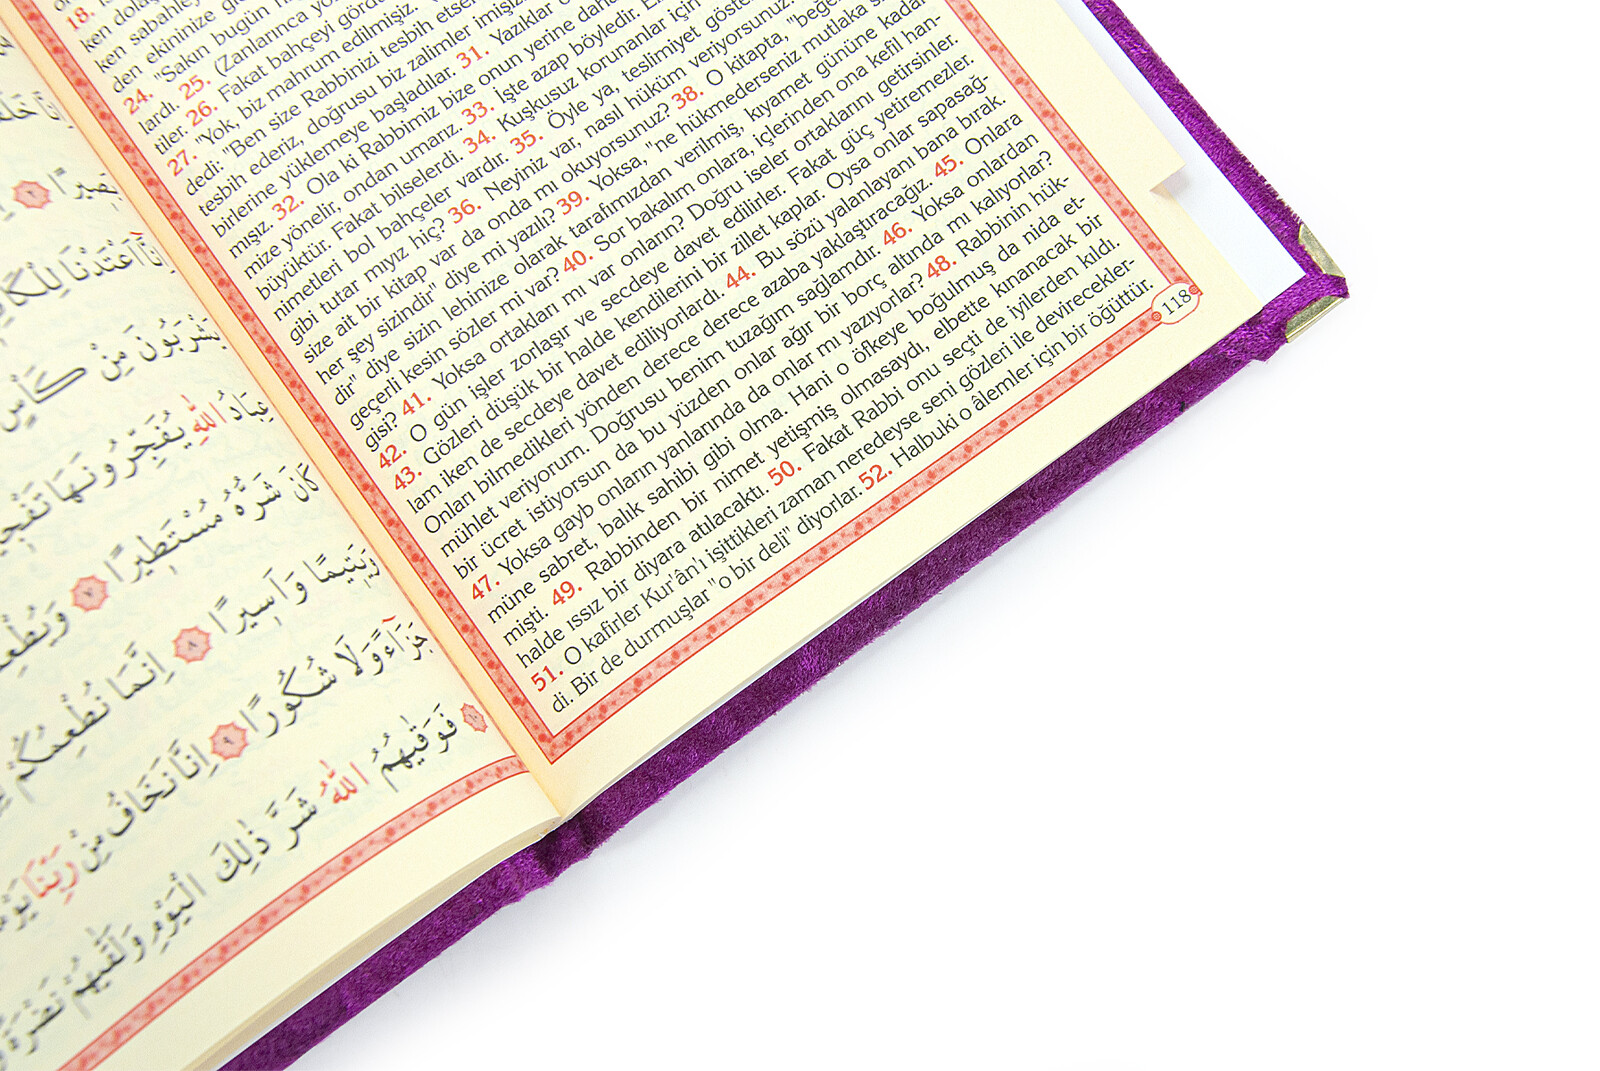 18.
ken sabahley
den ekininize
24. "Sakın bugün
lardı. 25. (Zanlarınca
tiler. 26. Fakat bahçeyi
27. "Yok, biz mahrum edilmişiz.
dedi: "Ben size Rabbinizi tesbih etse
tesbih ederiz, doğrusu biz zalimler imişiz
birlerine yüklemeye başladılar. 31. Yazıklar
mışız. 32. Ola ki Rabbimiz bize onun yerine daha
mize yönelir, ondan umarız. 33. İşte azap böyledir.
büyüktür. Fakat bilselerdi. 34. Kuşkusuz korunanlar için
nimetleri bol bahçeler vardır. 35. Öyle ya, teslimiyet göste
gibi tutar mıyız hiç? 36. Neyiniz var, nasıl hüküm veriyorsunuz
size ait bir kitap var da onda mı okuyorsunuz? 38. O kitapta, "beğe
her şey sizindir" diye mi yazılı? 39. Yoksa, "ne hükmederseniz mutlaka
dir" diye sizin lehinize olarak tarafımızdan verilmiş, kıyamet gününe kadar
geçerli kesin sözler mi var? 40. Sor bakalım onlara, içlerinden ona kefil han-
gisi? 41. Yoksa ortakları mı var onların? Doğru iseler ortaklarını getirsinler.
42. O gün işler zorlaşır ve secdeye davet edilirler. Fakat güç yetiremezler.
43. Gözleri düşük bir halde kendilerini bir zillet kaplar. Oysa onlar sapasağ-
lam iken de secdeye davet ediliyorlardı. 44. Bu sözü yalanlayanı bana bırak.
Onları bilmedikleri yönden derece derece azaba yaklaştıracağız. 45. Onlara
mühlet veriyorum. Doğrusu benim tuzağım sağlamdır. 46. Yoksa onlardan
bir ücret istiyorsun da bu yüzden onlar ağır bir borç altında mı kalıyorlar?
47. Yoksa gayb onların yanlarında da onlar mı yazıyorlar? 48. Rabbinin hük-
müne sabret, balık sahibi gibi olma. Hani o öfkeye boğulmuş da nida et-
mişti. 49. Rabbinden bir nimet yetişmiş olmasaydı, elbette kınanacak bir
halde ıssız bir diyara atılacaktı. 50. Fakat Rabbi onu seçti de iyilerden kıldı.
51. O kafirler Kur'ân'ı işittikleri zaman neredeyse seni gözleri ile devirecekler-
di. Bir de durmuşlar "o bir deli" diyorlar. 52. Halbuki o âlemler için bir öğüttür.
118
اِنَّا
اِنَّٓا اَعْتَدْنَا
يَشْرَبُونَ مِنْ كَأْسٍ
عِبَادُ اللّٰهِ يُفَجِّرُونَهَا
كَانَ شَرُّهُ مُسْتَط۪يرًا ٧
وَيَت۪يمًا وَاَس۪يرًا ٨ اِنَّمَا نُطْعِمُكُمْ
جَزَٓاءً وَلَا شُكُورًا ٩ اِنَّا نَخَافُ مِنْ رَبِّنَا
١٠ فَوَقٰيهُمُ اللّٰهُ شَرَّ ذٰلِكَ الْيَوْمِ وَلَقّٰيهُمْ نَضْرَةً